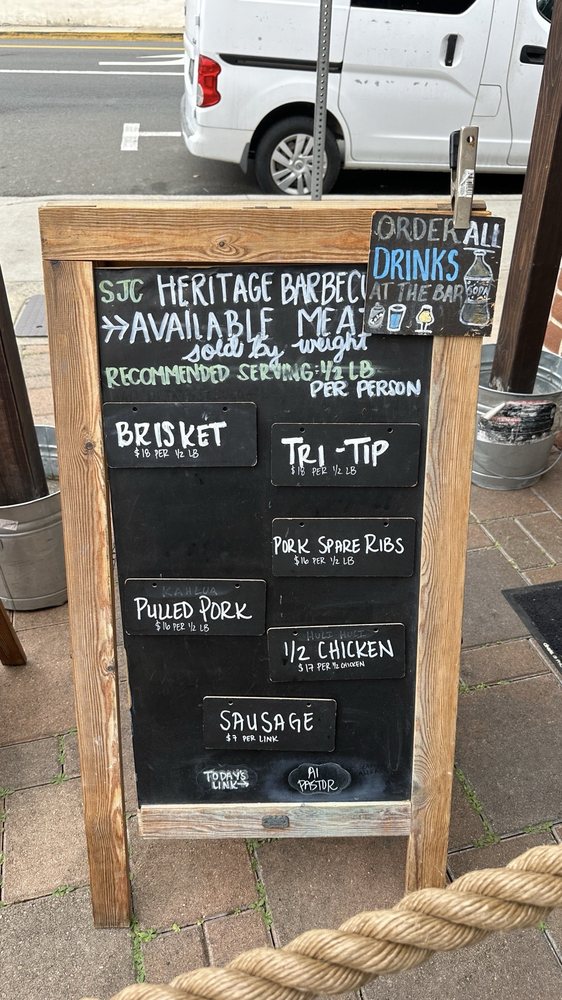 ORDER ALL
DRINKS
AT THE BAR
SODA
SJC HERITAGE BARBECU
AVAILABLE MEAT
sold by weight
RECOMMENDED SERVING: 1/2 LB
PER PERSON
BRISKET
$18 PER 1/2 LB
TRI-TIP
$18 PER 1/2 LB
PORK SPARE RIBS
$16 PER 1/2 LB
KAHLUA
PULLED PORK
$16 PER 1/2 LB
HULI HULI
1/2 CHICKEN
$17 PER 1/2 CHICKEN
SAUSAGE
$7 PER LINK
TODAY'S
LINK
Al
PASTOR